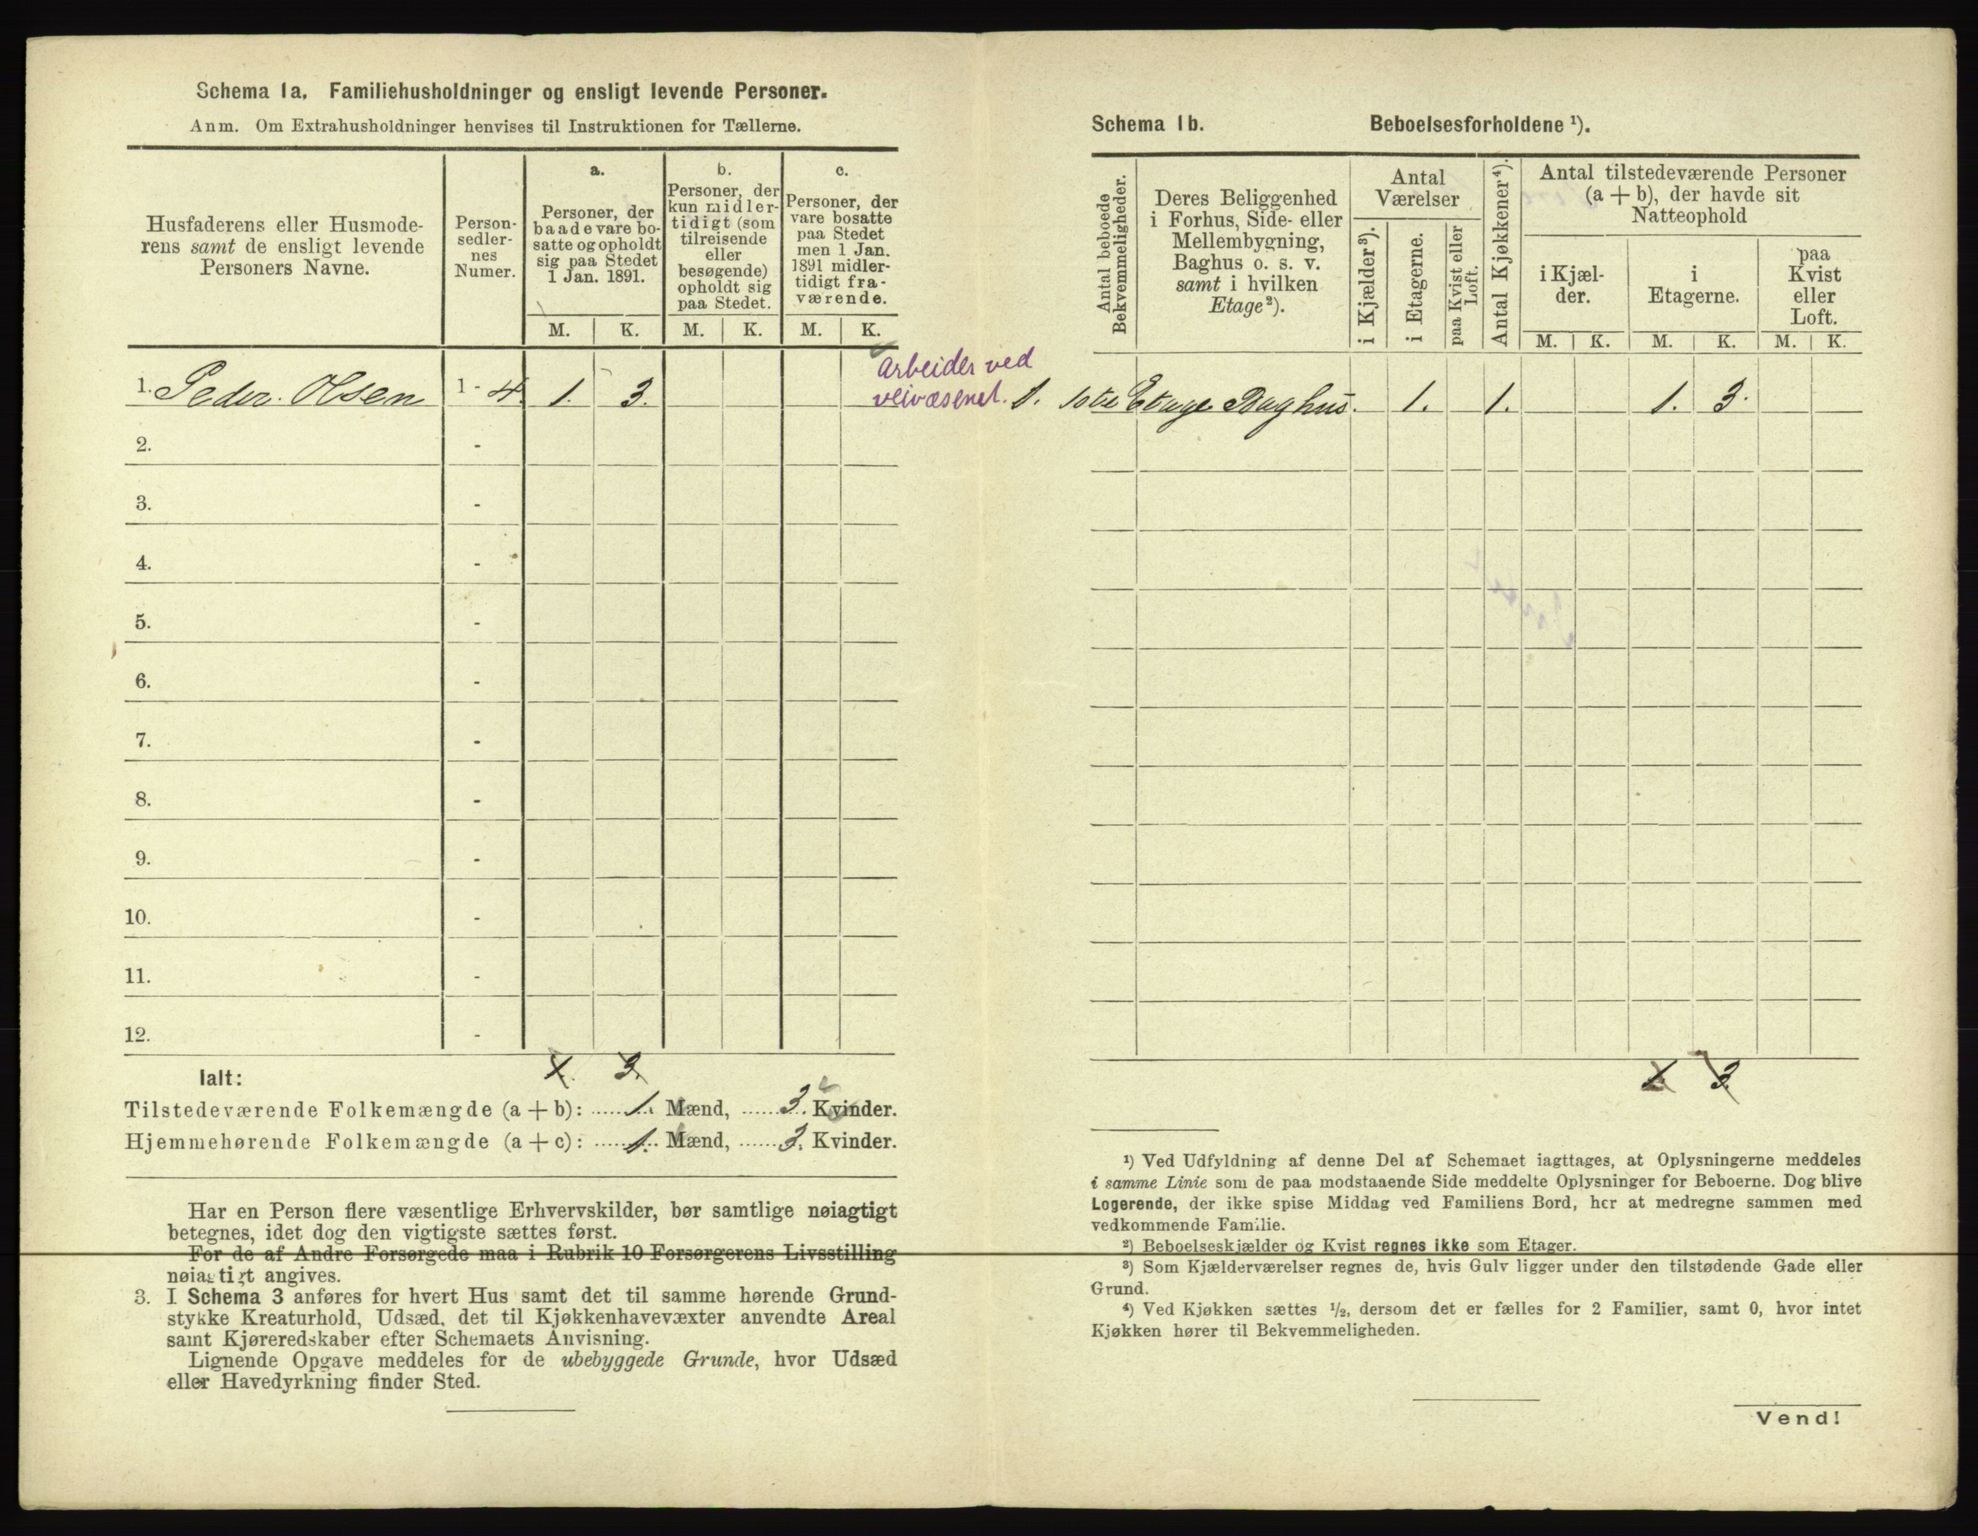 Schema 1a. Familiehusholdninger og ensligt levende Personer.
Anm. Om Extrahusholdninger henvises til Instruktionen for Tællerne.
Husfaderens eller Husmode-
rens samt de ensligt levende
Personers Navne.
Person-
sedler-
nes
Numer.
a.
Personer, der
baade vare bo-
satte og opholdt
sig paa Stedet
1 Jan. 1891.
b.
Personer, der
kun midler-
tidigt (som
tilreisende
eller
besøgende)
opholdt sig
paa Stedet.
c.
Personer, der
vare bosatte
paa Stedet
men 1 Jan.
1891 midler-
tidigt fra-
værende.
M. K. M. K. M. K.
1. Peder Olsen 1 - 4. 1. 3.
Arbeider ved
veivæsenet.
2. -
3. -
4. -
5. -
6. -
7. -
8. -
9. -
10. -
11. -
12. -
Ialt: 1. 3.
Tilstedeværende Folkemængde (a + b): 1. Mænd, 3. Kvinder.
Hjemmehørende Folkemængde (a + c): 1. Mænd, 3. Kvinder.
Har en Person flere væsentlige Erhvervskilder, bør samtlige nøiagtigt
betegnes, idet dog den vigtigste sættes først.
For de af Andre Forsørgede maa i Rubrik 10 Forsørgerens Livsstilling
nøiagtigt angives.
3. I Schema 3 anføres for hvert Hus samt det til samme hørende Grund-
stykke Kreaturhold, Udsæd, det til Kjøkkenhavevæxter anvendte Areal
samt Kjøreredskaber efter Schemaets Anvisning.
Lignende Opgave meddeles for de ubebyggede Grunde, hvor Udsæd
eller Havedyrkning finder Sted.
Schema 1b. Beboelsesforholdene ¹).
Antal beboede
Bekvemmeligheder.
Deres Beliggenhed
i Forhus, Side- eller
Mellembygning,
Baghus o. s. v.
samt i hvilken
Etage ²).
Antal
Værelser
i Kjælder ³).
i Etagerne.
paa Kvist eller
Loft.
Antal Kjøkkener ⁴).
Antal tilstedeværende Personer
(a + b), der havde sit
Natteophold
i Kjæl-
der.
i
Etagerne.
paa
Kvist
eller
Loft.
M. K. M. K. M. K.
1. 1ste Etage Baghus. 1. 1. 1. 3.
1. 3.
¹) Ved Udfyldning af denne Del af Schemaet iagttages, at Oplysningerne meddeles
i samme Linie som de paa modstaaende Side meddelte Oplysninger for Beboerne. Dog blive
Logerende, der ikke spise Middag ved Familiens Bord, her at medregne sammen med
vedkommende Familie.
²) Beboelseskjælder og Kvist regnes ikke som Etager.
³) Som Kjælderværelser regnes de, hvis Gulv ligger under den tilstødende Gade eller
Grund.
⁴) Ved Kjøkken sættes ½, dersom det er fælles for 2 Familier, samt 0, hvor intet
Kjøkken hører til Bekvemmeligheden.
Vend!